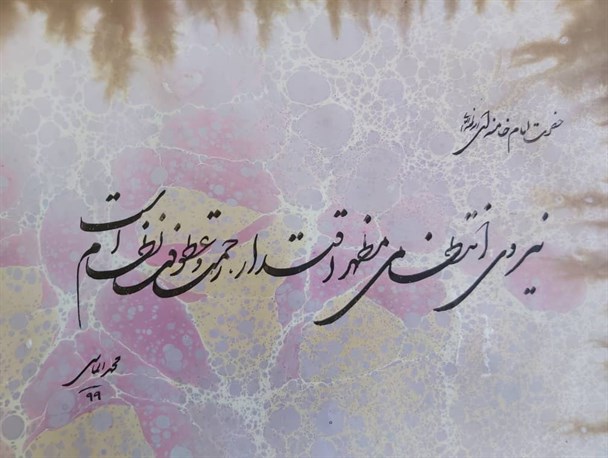 حضرت امام خامنه‌ای
نیروی انتظامی مظهر اقتدار رحمت و عطوفت نظام است
محمد الماسی
۹۹